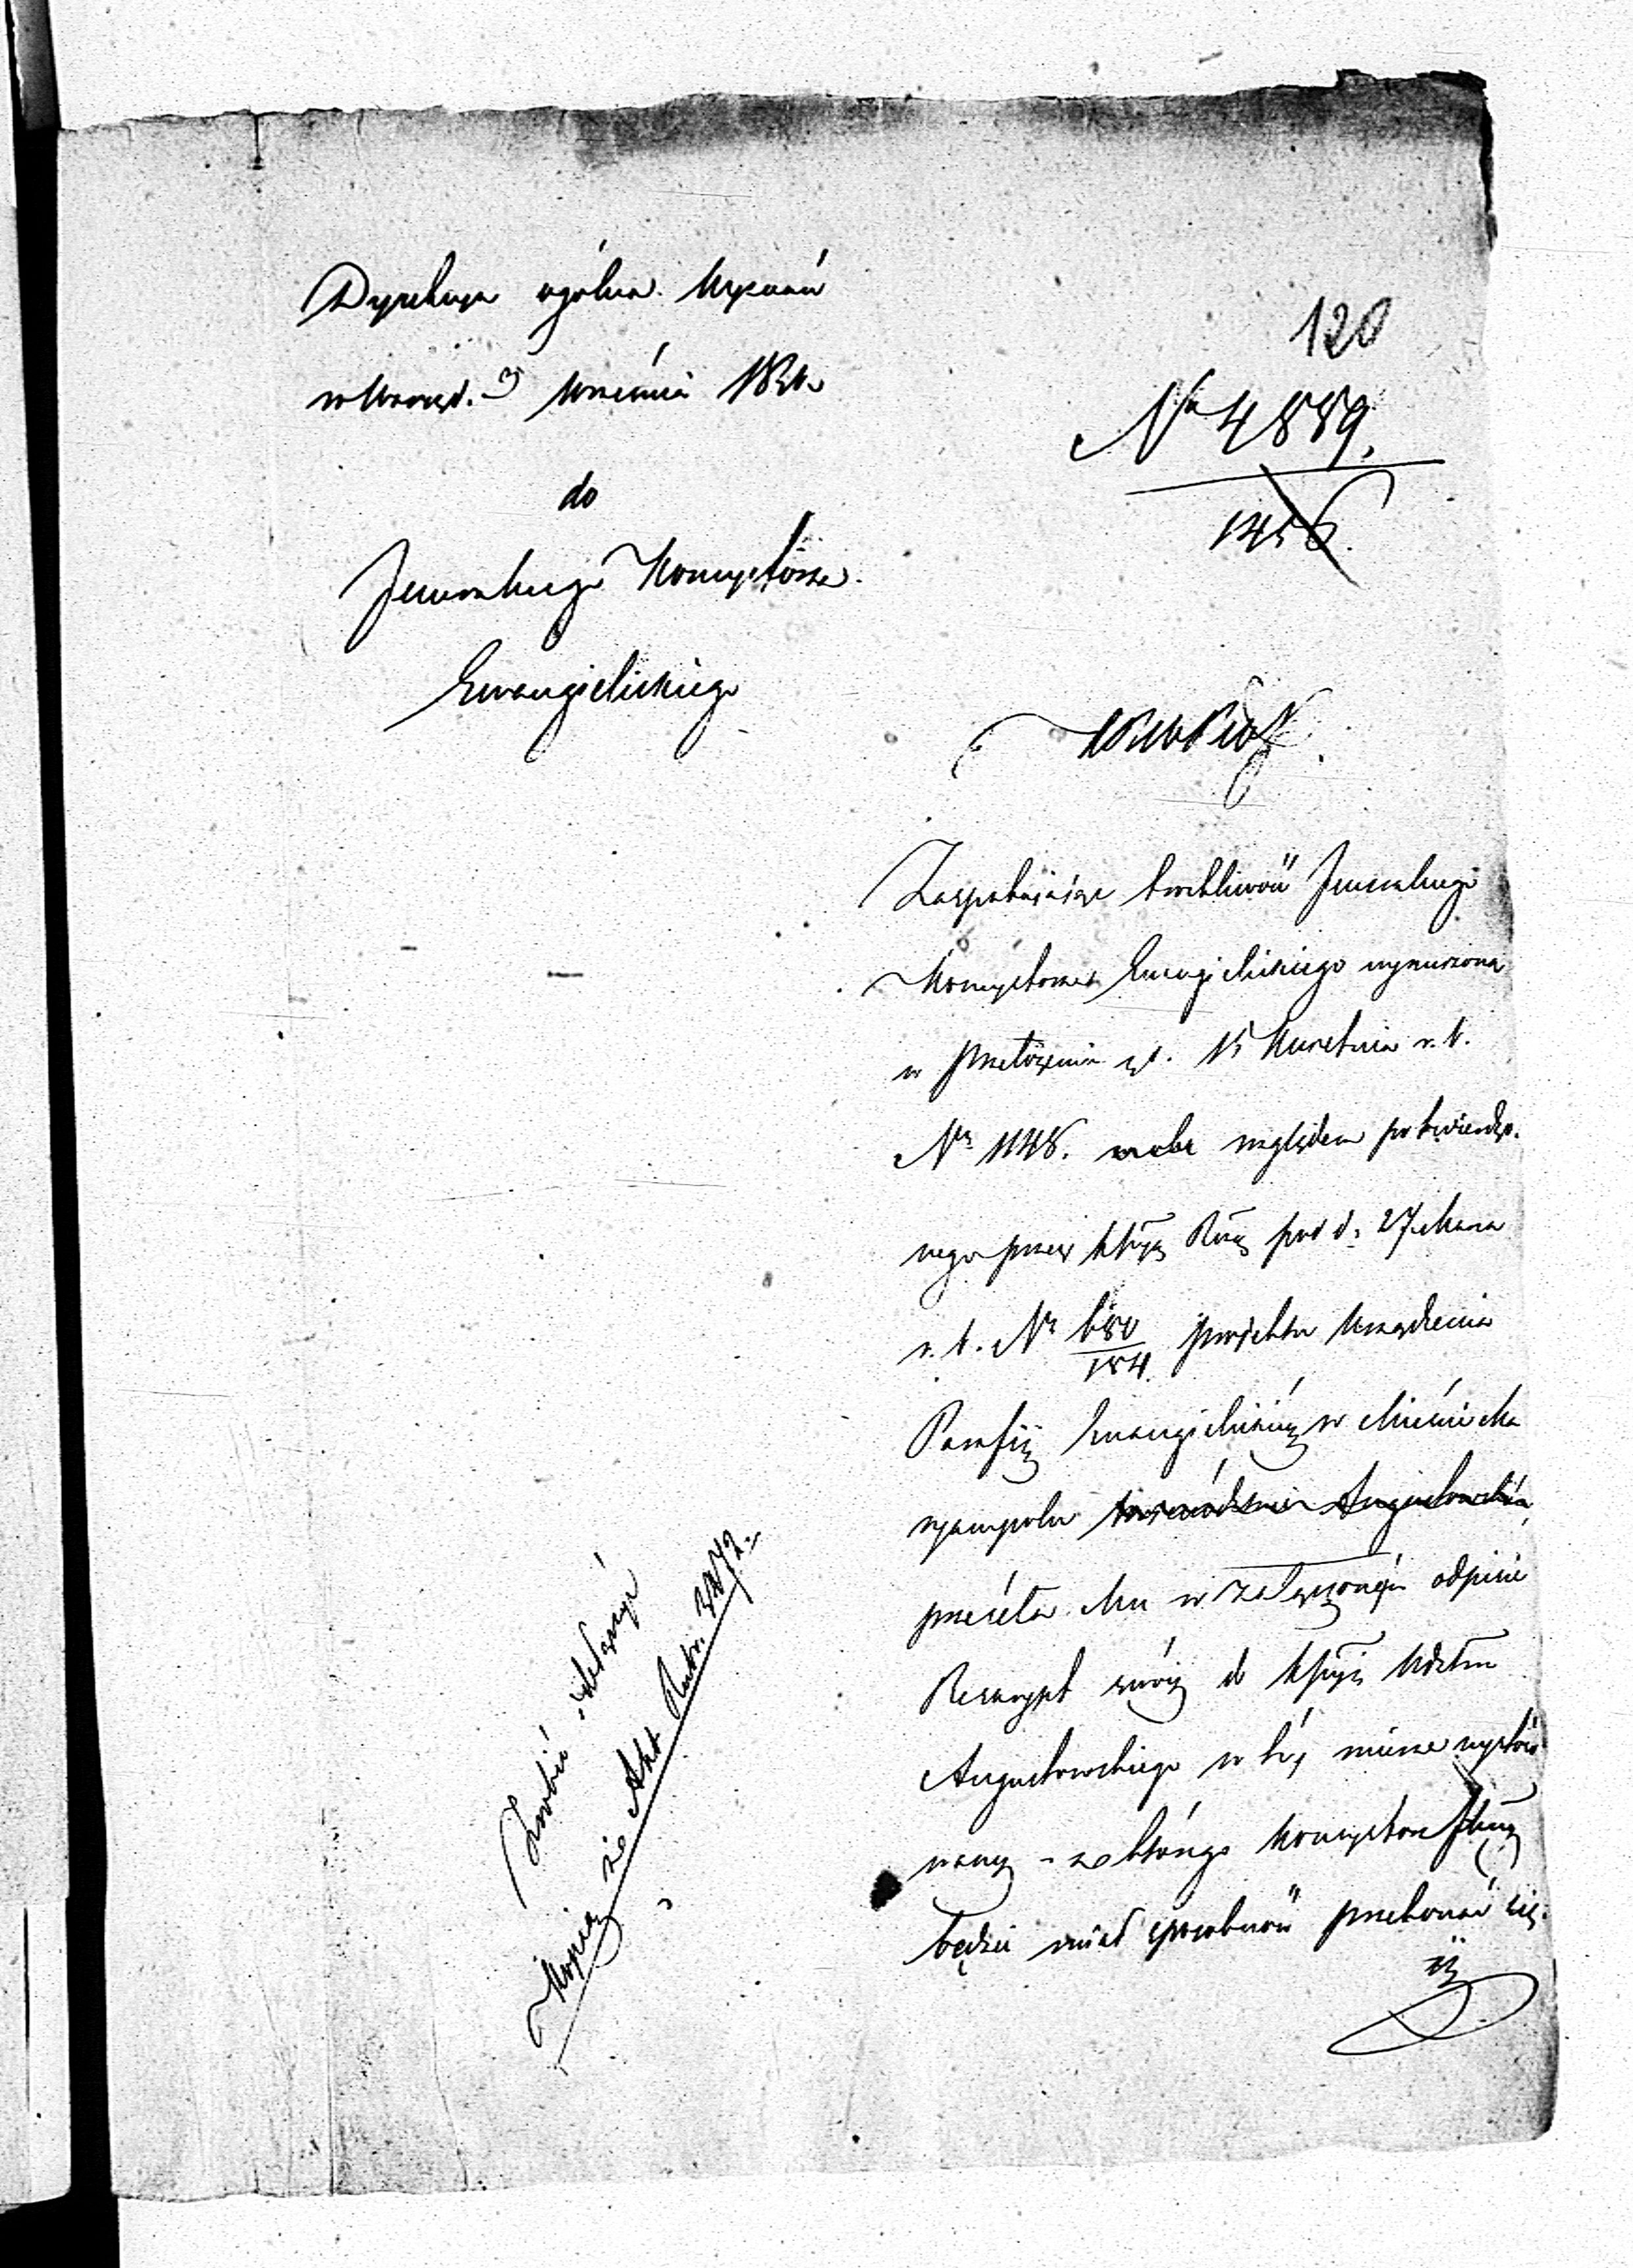 Dyrekcya ogólna Wyznań
w Warsz. d. 3 Września 183
do
Jeneralnego Konsystorza
Ewangielickiego
120
No 4889.
1456.
Zaspakajając troskliwość Jeneralnego
Konsystorza Ewangielickiego wynurzoną
w przełożeniu z d. 15 Kwietnia r. b.
Nr 1148. względem potwierdzo-
nego przez Kssyą Rząd. pod d. 27 Marca
r. b. Nr 680/184. projektu Urządzenia
Parafii Ewangielickiéj w Mieście Ma
ryampolu Województwie Augustowskim,
przesyła Mu w załączonym odpisie
Reskrypt swój do Kssyi Wdztwa
Augustowskiego w téj mierze wystóso
wany – z którego Konsystorz Jlny
będzie miał sposobność przekonać się.
Zrobić
Kopią do Akt Rubr. 3472